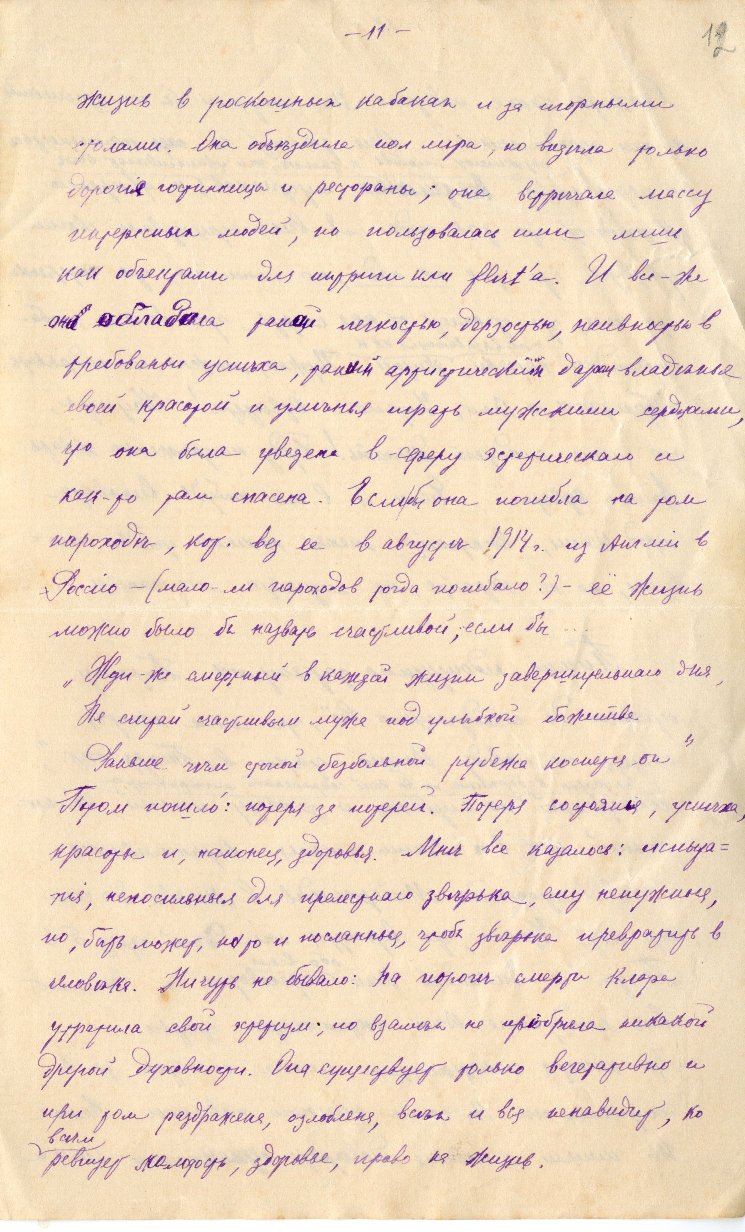 - 11 -
12
жизнь в роскошных кабаках и за игорными
столами. Она объѣздила пол мира, но видѣла только
дорогія гостинницы и рестораны; она встрѣчала массу
интересных людей, но пользовалась ими лишь
как объектами для интриги или flirt'a. И все-же
она обладала такой легкостью, дерзостью, наивностью в
требованьи успѣха, таким артистическим даром владѣнья
своей красотой и умѣнья играть мужскими сердцами,
что она была уведена в сферу эстетическаго и
как-то там спасена. Если бы она погибла на том
пароходѣ, кот. вез ее в августѣ 1914 г. из Англіи в
Россію - (мало-ли пароходов тогда погибало?) - её жизнь
можно было бы назвать счастливой, если бы ...
„Жди-же смертный в каждой жизни завершительнаго дня,
Не считай счастливым мужа под улыбкой божества
Раньше чѣм стопой безбольной рубежа коснется он"
Потом пошло: потеря за потерей. Потеря состоянія, успѣха,
красоты и, наконец, здоровья. Мнѣ все казалось: испыта=
нія, непосильныя для прелестнаго звѣрька, ему ненужныя,
но, быть может, на то и посланныя, чтобы звѣрька превратить в
человѣка. Ничуть не бывало: на порогѣ смерти Клара
утратила свой эстетизм; но взамѣн не пріобрела никакой
другой духовности. Она существует только вегетативно и
при том раздражена, озлоблена, всѣх и вся ненавидит, ко
всѣм
ревнует молодость, здоровье, право на жизнь.